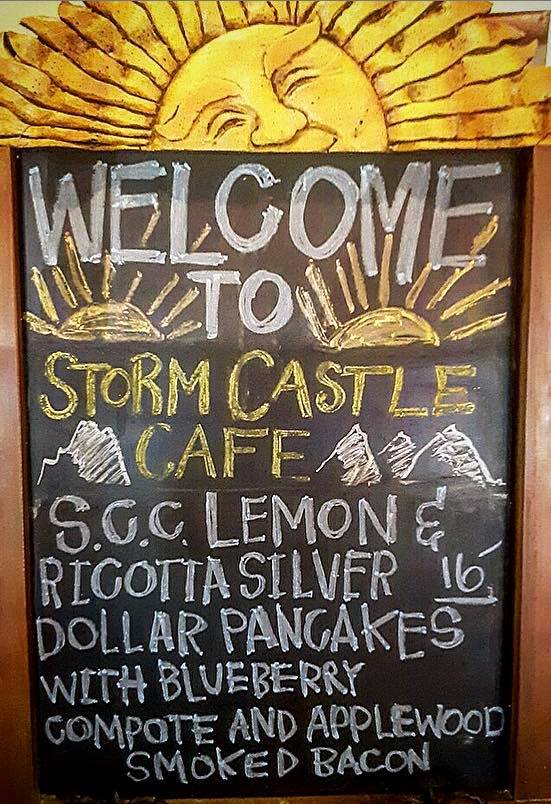 WELCOME
TO
STORM CASTLE
CAFE
S.C.C. LEMON &
RICOTTA SILVER 16
DOLLAR PANCAKES
WITH BLUEBERRY
COMPOTE AND APPLEWOOD
SMOKED BACON